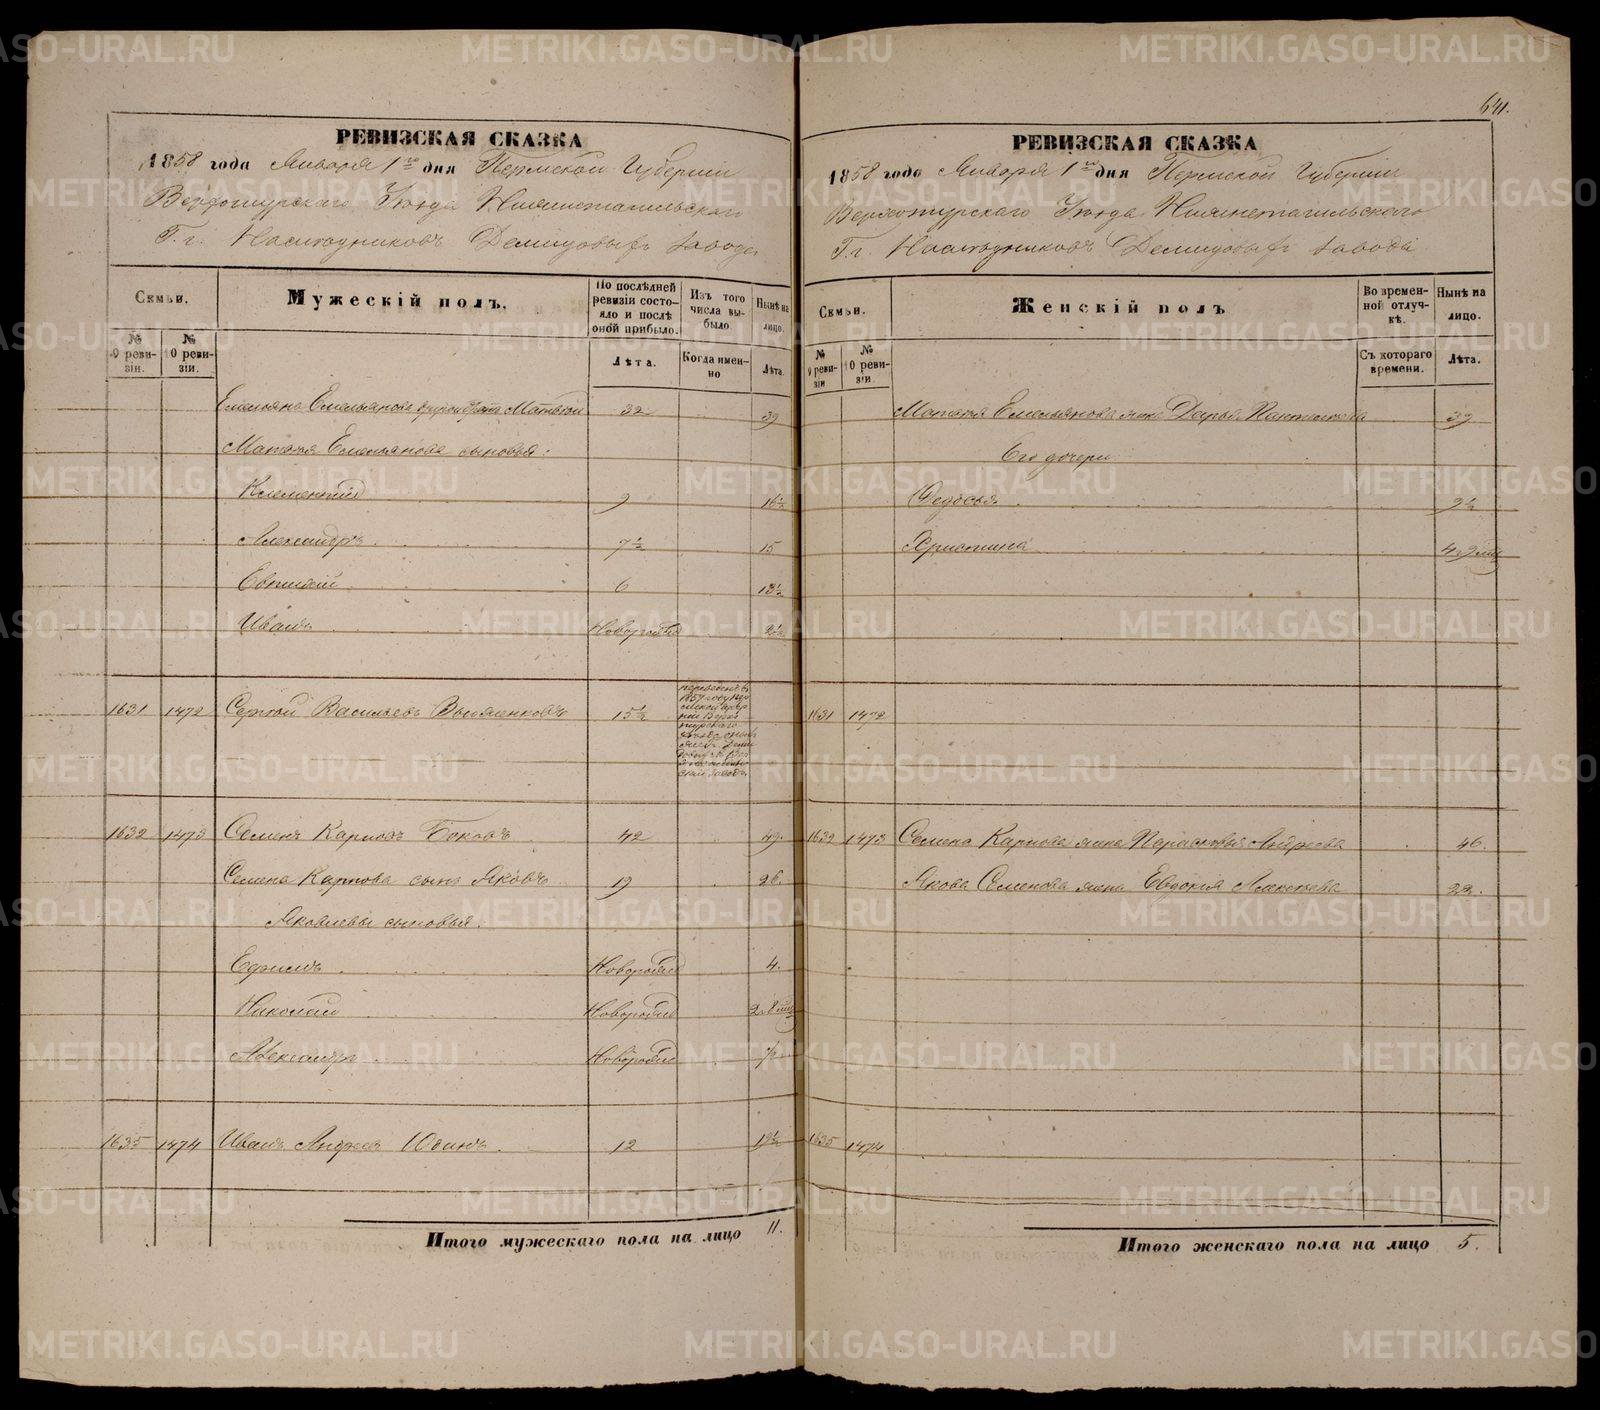 641.
РЕВИЗСКАЯ СКАЗКА
1858 года Января 1го дня Пермской Губернии
Верхотурскаго Уѣзда Нижнетагильскаго
Г.г. Наслѣдниковъ Демидовыхъ завода
Семьи.
Мужескій полъ.
По послѣдней ревизіи состояло и послѣ оной прибыло.
Изъ того числа выбыло
Нынѣ на лицо.
№ 9 ревизіи.
№ 10 ревизіи.
Лѣта.
Когда именно
Лѣта.
Емельяна Емельянова другой братъ Матвей 32 39
Матвея Емельянова сыновья:
Клементий 9 16½
Александръ 7½ 15
Евтихий 6 13½
Иванъ Новорожд 2½
1631 1472 Сергей Васильевъ 15½
1632 1473 Семенъ Карповъ Боковъ 42 49.
Семена Карпова сынъ Яковъ 19 26.
Яковлевы сыновья.
Ефимъ Новорожд 4.
Николай Новорожд 2.8 мѣс
Александръ Новорожд
1635 1474 Иванъ Андреевъ Юдинъ 12 19½
Итого мужескаго пола на лицо 11.
РЕВИЗСКАЯ СКАЗКА
1858 года Января 1го дня Пермской Губернии
Верхотурскаго Уѣзда Нижнетагильскаго
Г.г. Наслѣдниковъ Демидовыхъ завода
Семьи.
Женскій полъ
Во временной отлучкѣ.
Нынѣ на лицо.
№ 9 ревизіи
№ 10 ревизіи.
Съ котораго времени.
Лѣта.
Матвея Емельянова жена Дарья 39
Его дочери
Федосья 9½
Христина 4.9 мѣс
1631 1472
1632 1473 Семена Карпова жена Парасковья Андреева 46.
Якова Семенова жена Евдокия Алексеева 22.
1635 1474
Итого женскаго пола на лицо 5.
METRIKI.GASO-URAL.RU